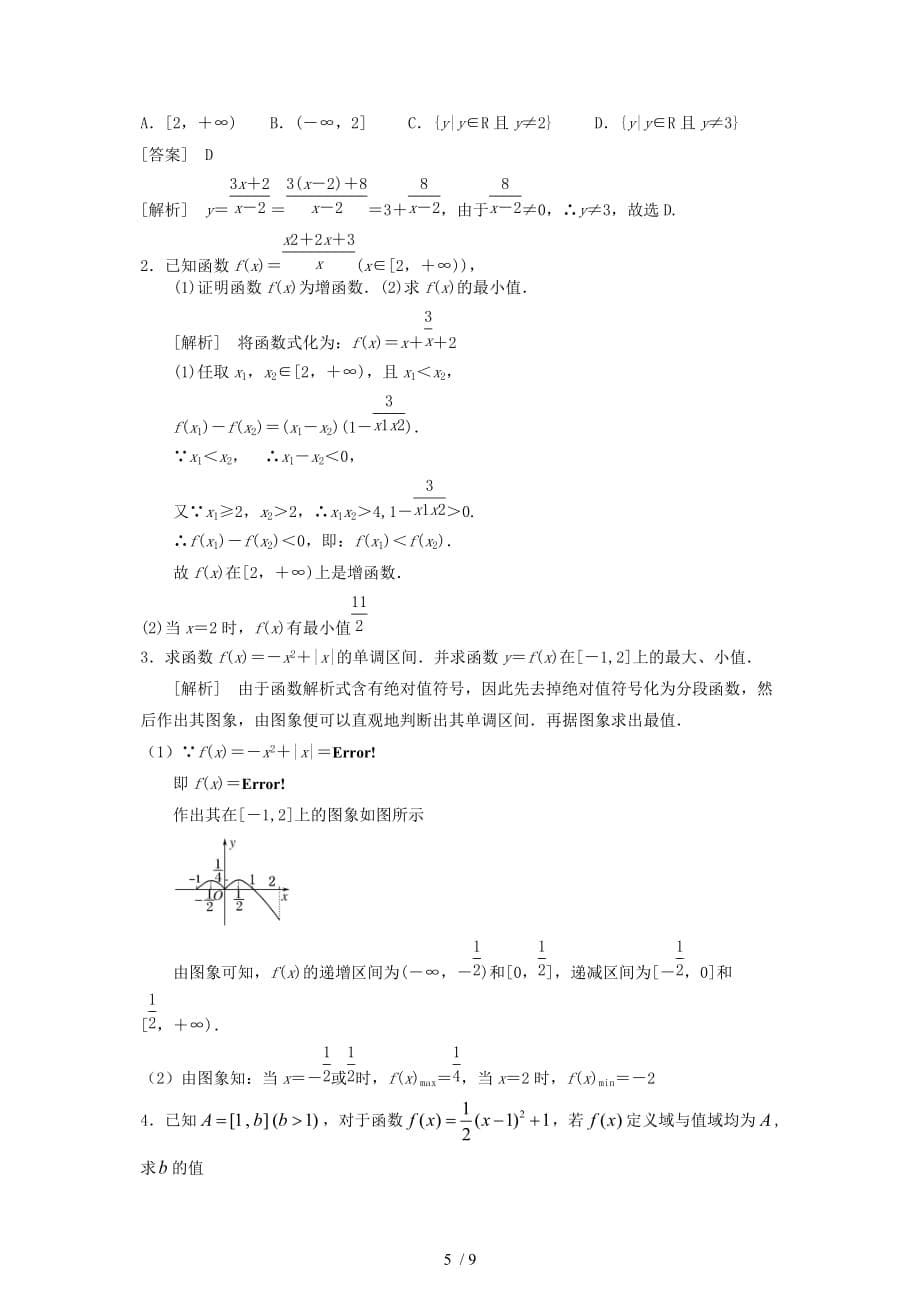 A．[2，＋∞)　　B．(－∞，2]　　C．{y|y∈R 且 y≠2}　　D．{y|y∈R 且 y≠3}
[答案]　D
[解析]　y＝(3x＋2)/(x－2)＝(3(x－2)＋8)/(x－2)＝3＋8/(x－2)，由于8/(x－2)≠0，∴y≠3，故选 D.
2．已知函数 f(x)＝(x2＋2x＋3)/x (x∈[2，＋∞))，
(1)证明函数 f(x)为增函数．(2)求 f(x)的最小值．
[解析]　将函数式化为：f(x)＝x＋3/x＋2
(1)任取 x₁，x₂∈[2，＋∞)，且 x₁＜x₂，
f(x₁)－f(x₂)＝(x₁－x₂)(1－3/(x1x2))．
∵x₁＜x₂，　∴x₁－x₂＜0，
又∵x₁≥2，x₂＞2，∴x₁x₂＞4,1－3/(x1x2)＞0.
∴f(x₁)－f(x₂)＜0，即：f(x₁)＜f(x₂)．
故 f(x)在[2，＋∞)上是增函数．
(2)当 x＝2 时，f(x)有最小值11/2
3．求函数 f(x)＝－x²＋|x|的单调区间．并求函数 y＝f(x)在[－1,2]上的最大、小值．
[解析]　由于函数解析式含有绝对值符号，因此先去掉绝对值符号化为分段函数，然
后作出其图象，由图象便可以直观地判断出其单调区间．再据图象求出最值．
（1）∵f(x)＝－x²＋|x|＝Error!
即 f(x)＝Error!
作出其在[－1,2]上的图象如图所示
y
1/4
-1 1 2
-1/2 O 1/2 x
由图象可知，f(x)的递增区间为(－∞，－1/2)和[0，1/2]，递减区间为[－1/2，0]和
[1/2，＋∞)．
（2）由图象知：当 x＝－1/2或1/2时，f(x)max＝1/4，当 x＝2 时，f(x)min＝－2
4．已知 A＝[1,b](b＞1)，对于函数 f(x)＝1/2(x－1)²＋1，若 f(x)定义域与值域均为 A，
求 b 的值
5 / 9